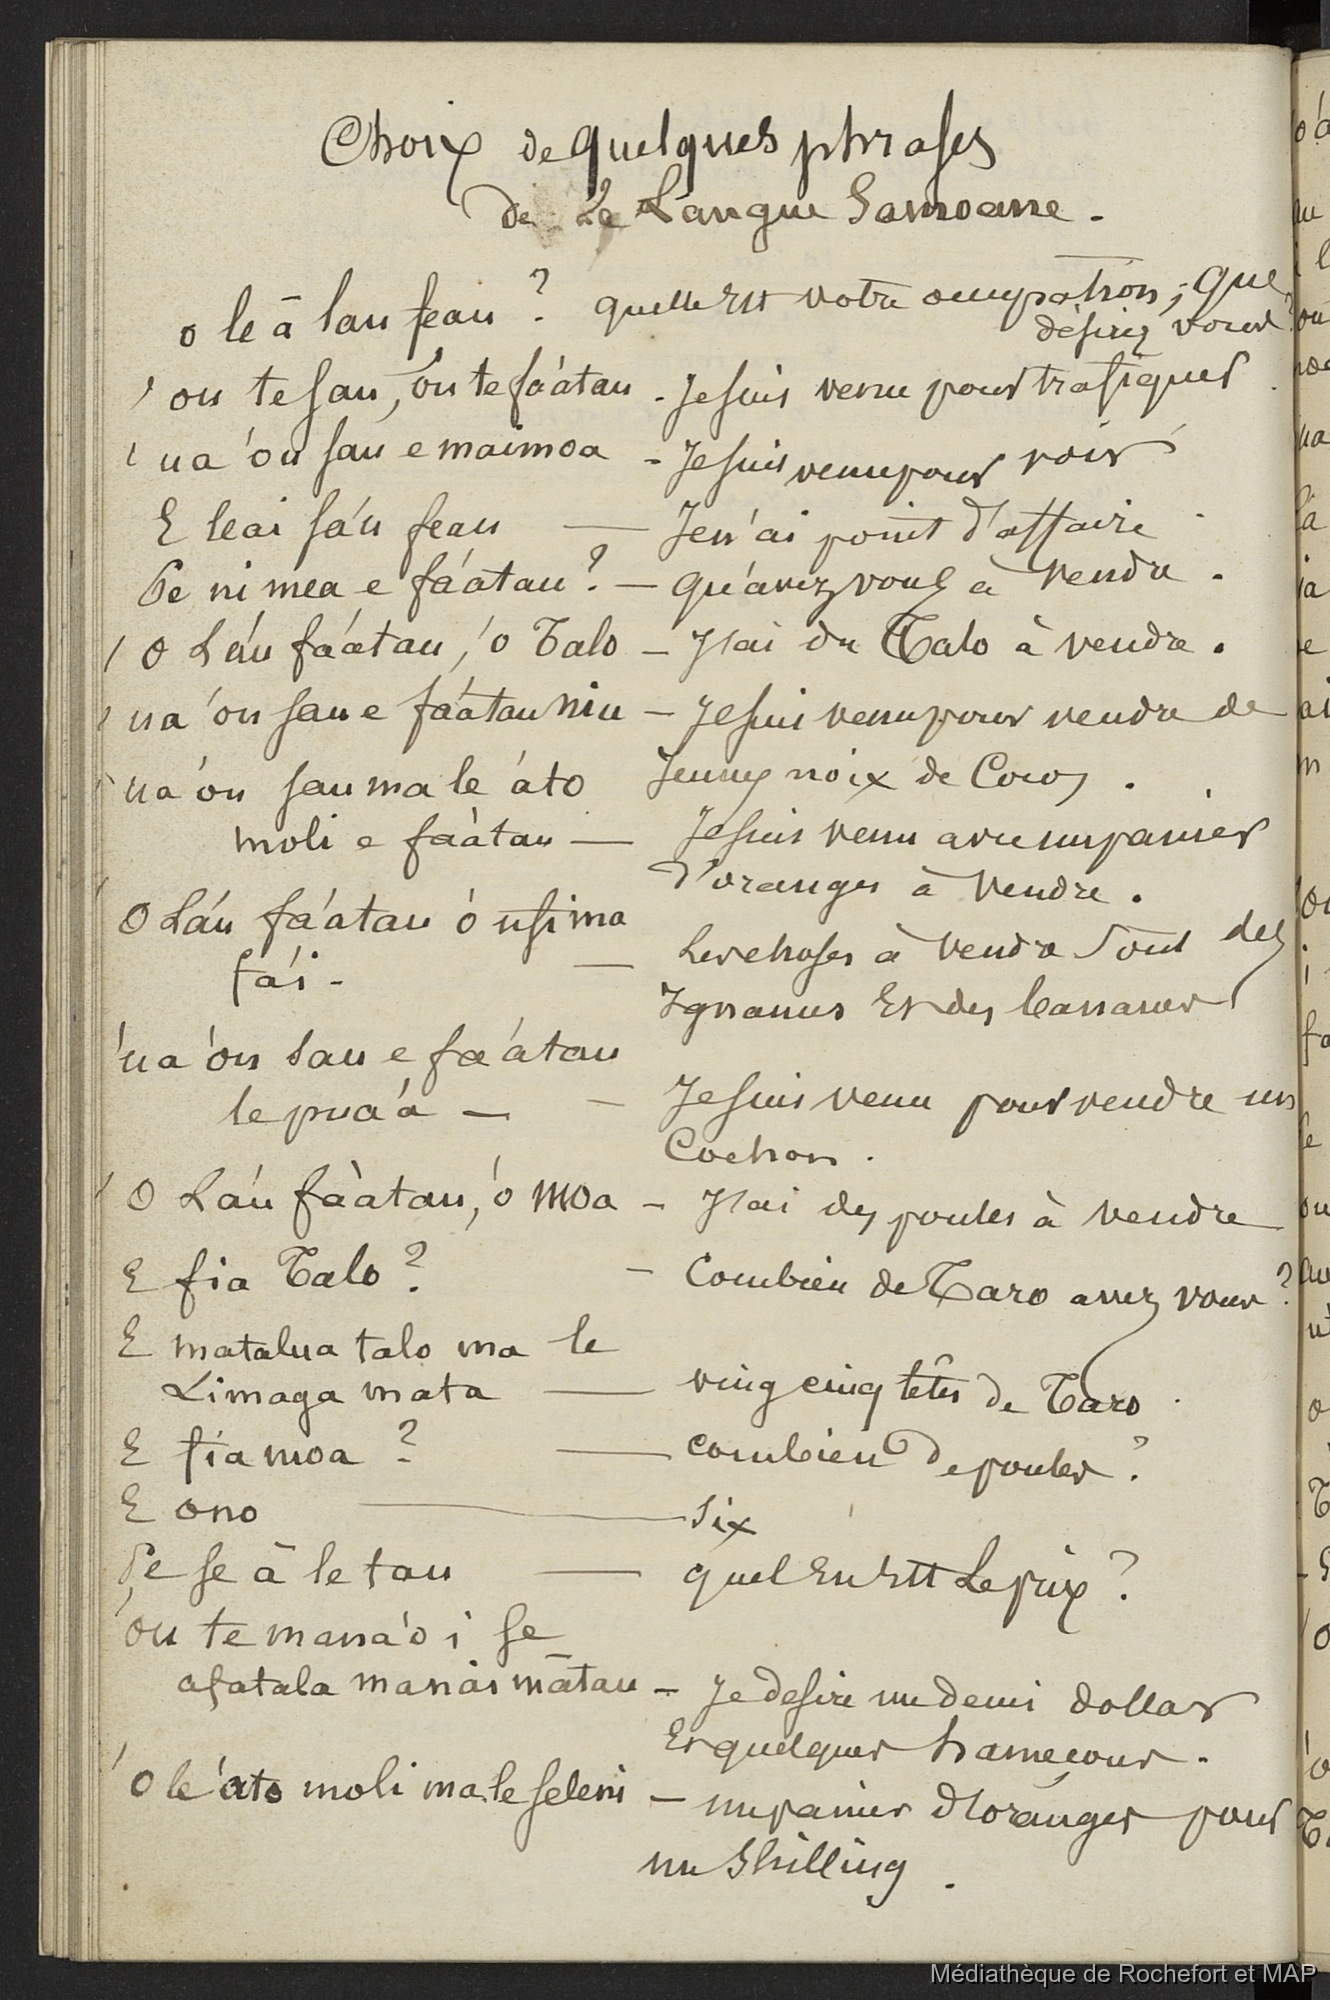 Choix de quelques phrases
de La Langue Samoane.
o le ā lau feau ? quelle Est votre occupation ; Que
désirez vous ?
'ou te sau, 'ou te fa'atau - Je suis venu pour trafiquer.
'ua 'ou sau e maimoa - Je suis venu pour voir
E leai sa'u feau — Je n'ai point d'affaire
Pe ni mea e fa'atau ? — Qu'avez vous à vendre.
'O La'u fa'atau, 'o Talo — J'ai du Talo à vendre.
'ua 'ou sau e fa'atau niu — Je suis venu pour vendre de
Jeunes noix de Cocos.
'ua 'ou sau ma le 'ato
moli e fa'atau — Je suis venu avec un panier
d'oranges à vendre.
O La'u fa'atau 'o ufi ma
fa'i - — Les choses à vendre Sont des
Ignames Et des bananes
'ua 'ou sau e fa'atau
le pua'a — - Je suis venu pour vendre un
Cochon.
'O La'u fa'atau, 'o Moa - J'ai des poules à vendre
E fia Talo ? - Combien de Taro avez vous ?
E matalua talo ma le
Limaga mata — vingt cinq têtes de Taro.
E fia moa ? — combien de poules ?
E ono — Six
Pe se ā le tau — quel En Est Le prix ?
'ou te mana'o i se
afatala ma nai mātau — Je desire un demi dollar
Et quelques hameçons.
'O le 'ato moli ma le seleni — un panier d'oranges pour
un Shilling.
Médiathèque de Rochefort et MAP